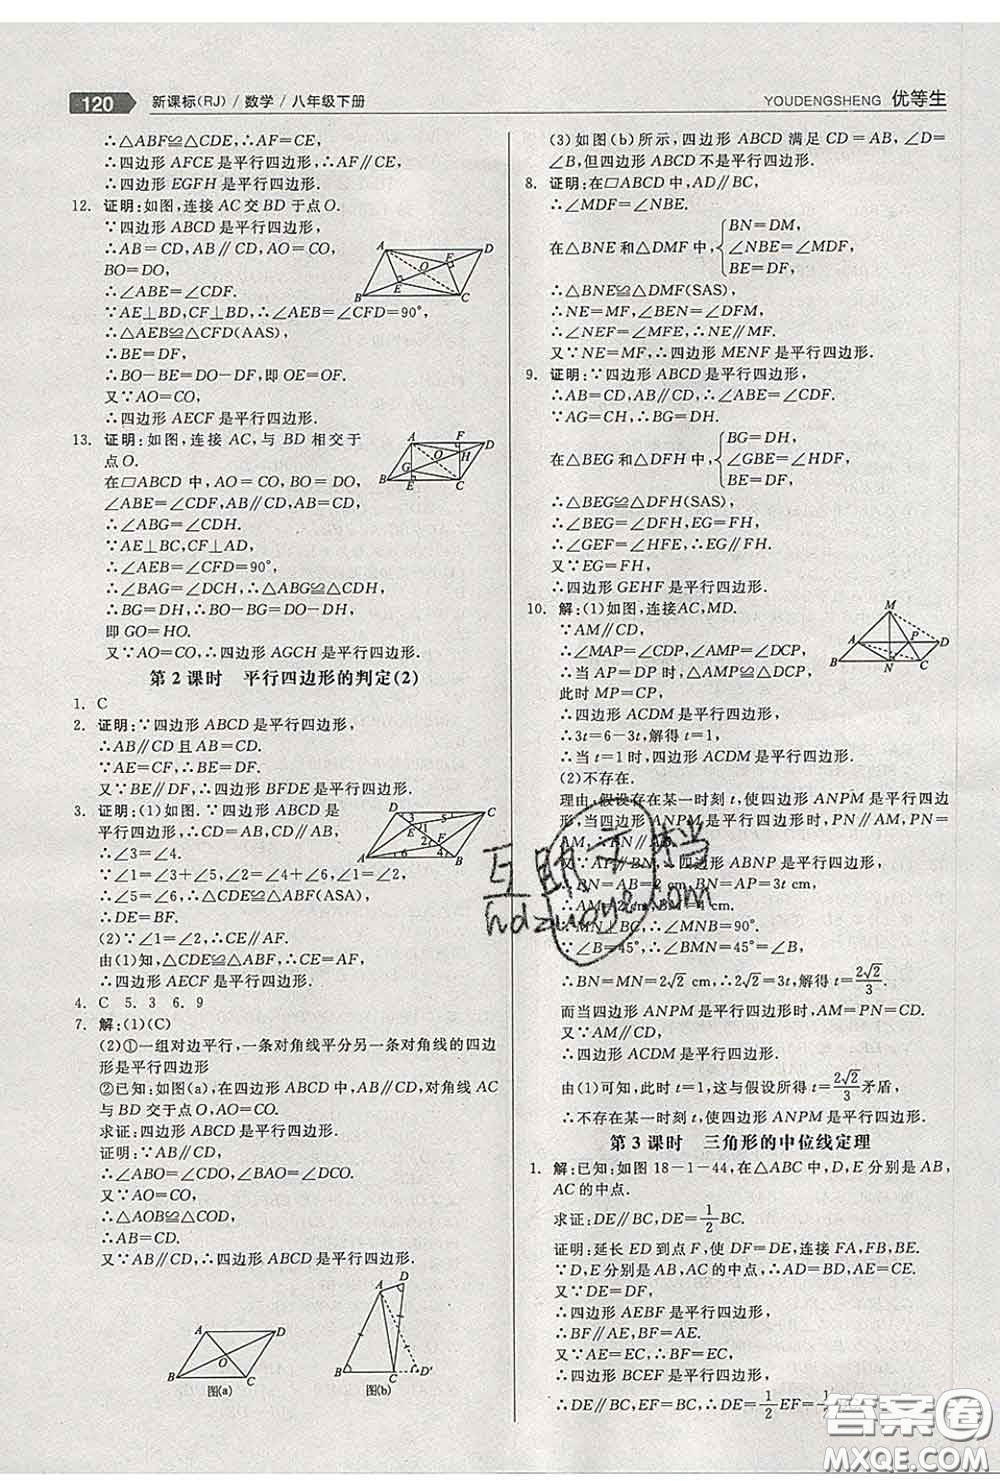 120 新课标(RJ)/数学/八年级下册
YOUDENGSHENG 优等生
∴△ABF≌△CDE,∴AF=CE,
∴四边形AFCE是平行四边形,∴AF∥CE,
∴四边形EGFH是平行四边形.
12. 证明:如图,连接AC交BD于点O.
∵四边形ABCD是平行四边形,
∴AB=CD,AB∥CD,AO=CO,
BO=DO,
∴∠ABE=∠CDF.
∵AE⊥BD,CF⊥BD,∴∠AEB=∠CFD=90°,
∴△AEB≌△CFD(AAS),
∴BE=DF,
∴BO-BE=DO-DF,即OE=OF.
又∵AO=CO,
∴四边形AECF是平行四边形.
13. 证明:如图,连接AC,与BD相交于
点O.
在□ABCD中,AO=CO,BO=DO,
∠ABE=∠CDF,AB=CD,AB∥CD,
∴∠ABG=∠CDH.
∵AE⊥BC,CF⊥AD,
∴∠AEB=∠CFD=90°,
∴∠BAG=∠DCH,∴△ABG≌△CDH,
∴BG=DH,∴BO-BG=DO-DH,
即GO=HO.
又∵AO=CO,∴四边形AGCH是平行四边形.
第2课时 平行四边形的判定(2)
1. C
2. 证明:∵四边形ABCD是平行四边形,
∴AB∥CD且AB=CD.
∵AE=CF,∴BE=DF.
又∵BE∥DF,∴四边形BFDE是平行四边形.
3. 证明:(1)如图.∵四边形ABCD是
平行四边形,∴AB=CD,AB∥CD,
∴∠3=∠4.
∵∠1=∠3+∠5,∠2=∠4+∠6,∠1=∠2,
∴∠5=∠6,∴△CDE≌△ABF(ASA),
∴DE=BF.
(2)∵∠1=∠2,∴CE∥AF.
由(1)知,△CDE≌△ABF,∴CE=AF,
∴四边形AECF是平行四边形.
4. C 5. 3 6. 9
7. 解:(1)(C)
(2)①一组对边平行,一条对角线平分另一条对角线的四边
形是平行四边形
②已知:如图(a),在四边形ABCD中,AB∥CD,对角线AC
与BD交于点O,AO=CO.
求证:四边形ABCD是平行四边形.
证明:∵AB∥CD,
∴∠ABO=∠CDO,∠BAO=∠DCO.
又∵AO=CO,
∴△AOB≌△COD,
∴AB=CD.
又∵AB∥CD,∴四边形ABCD是平行四边形.
图(a) 图(b)
(3)如图(b)所示,四边形ABCD满足CD=AB,∠D=
∠B,但四边形ABCD不是平行四边形.
8. 证明:在□ABCD中,AD∥BC,
∴∠MDF=∠NBE.
在△BNE和△DMF中, { BN=DM, ∠NBE=∠MDF, BE=DF,
∴△BNE≌△DMF(SAS),
∴NE=MF,∠BEN=∠DFM,
∴∠NEF=∠MFE,∴NE∥MF.
又∵NE=MF,∴四边形MENF是平行四边形.
9. 证明:∵四边形ABCD是平行四边形,
∴AB=CD,AB∥CD,∴∠GBE=∠HDF.
∵AG=CH,∴BG=DH.
在△BEG和△DFH中, { BG=DH, ∠GBE=∠HDF, BE=DF,
∴△BEG≌△DFH(SAS),
∴∠BEG=∠DFH,EG=FH,
∴∠GEF=∠HFE,∴EG∥FH.
又∵EG=FH,
∴四边形GEHF是平行四边形.
10. 解:(1)如图,连接AC,MD.
∵AM∥CD,
∴∠MAP=∠CDP,∠AMP=∠DCP,
∴当AP=DP时,△MAP≌△CDP,
此时MP=CP,
∴四边形ACDM是平行四边形,
∴3t=6-3t,解得t=1,
∴当t=1时,四边形ACDM是平行四边形.
(2)不存在.
理由:假设存在某一时刻t,使四边形ANPM是平行四边
形,当四边形ANPM是平行四边形时,PN∥AM,PN=
AM,∴PN∥AB.
又∵AP∥BN,∴四边形ABNP是平行四边形,
∴BN=AP,PN=AB=2 cm,
∴AM=AB=2 cm,BM=4 cm.
∵MN⊥BC,∴∠MNB=90°.
∵∠B=45°,∴∠BMN=45°=∠B,
∴BN=MN=2√2 cm,∴2√2=3t,解得t=2√2/3.
而当四边形ANPM是平行四边形时,AM=PN=CD,
又∵AM∥CD,
∴四边形ACDM是平行四边形.
由(1)可知,此时t=1,这与假设所得t=2√2/3矛盾,
∴不存在某一时刻t,使四边形ANPM是平行四边形.
第3课时 三角形的中位线定理
1. 解:已知:如图18-1-44,在△ABC中,D,E分别是AB,
AC的中点.
求证:DE∥BC,DE=1/2BC.
证明:延长ED到点F,使DF=DE,连接FA,FB,BE.
∵D,E分别是AB,AC的中点,∴AD=DB,AE=CE.
又∵DE=DF,
∴四边形AEBF是平行四边形,
∴BF∥AE,BF=AE.
又∵AE=EC,∴BF∥EC,BF=EC,
∴四边形BCEF是平行四边形,
∴EF∥BC,EF=BC,
∴DE∥BC,EF=BC,∴DE=1/2EF=1/2
互助文档
hdzuoye.com
答案圈
MXQE.COM